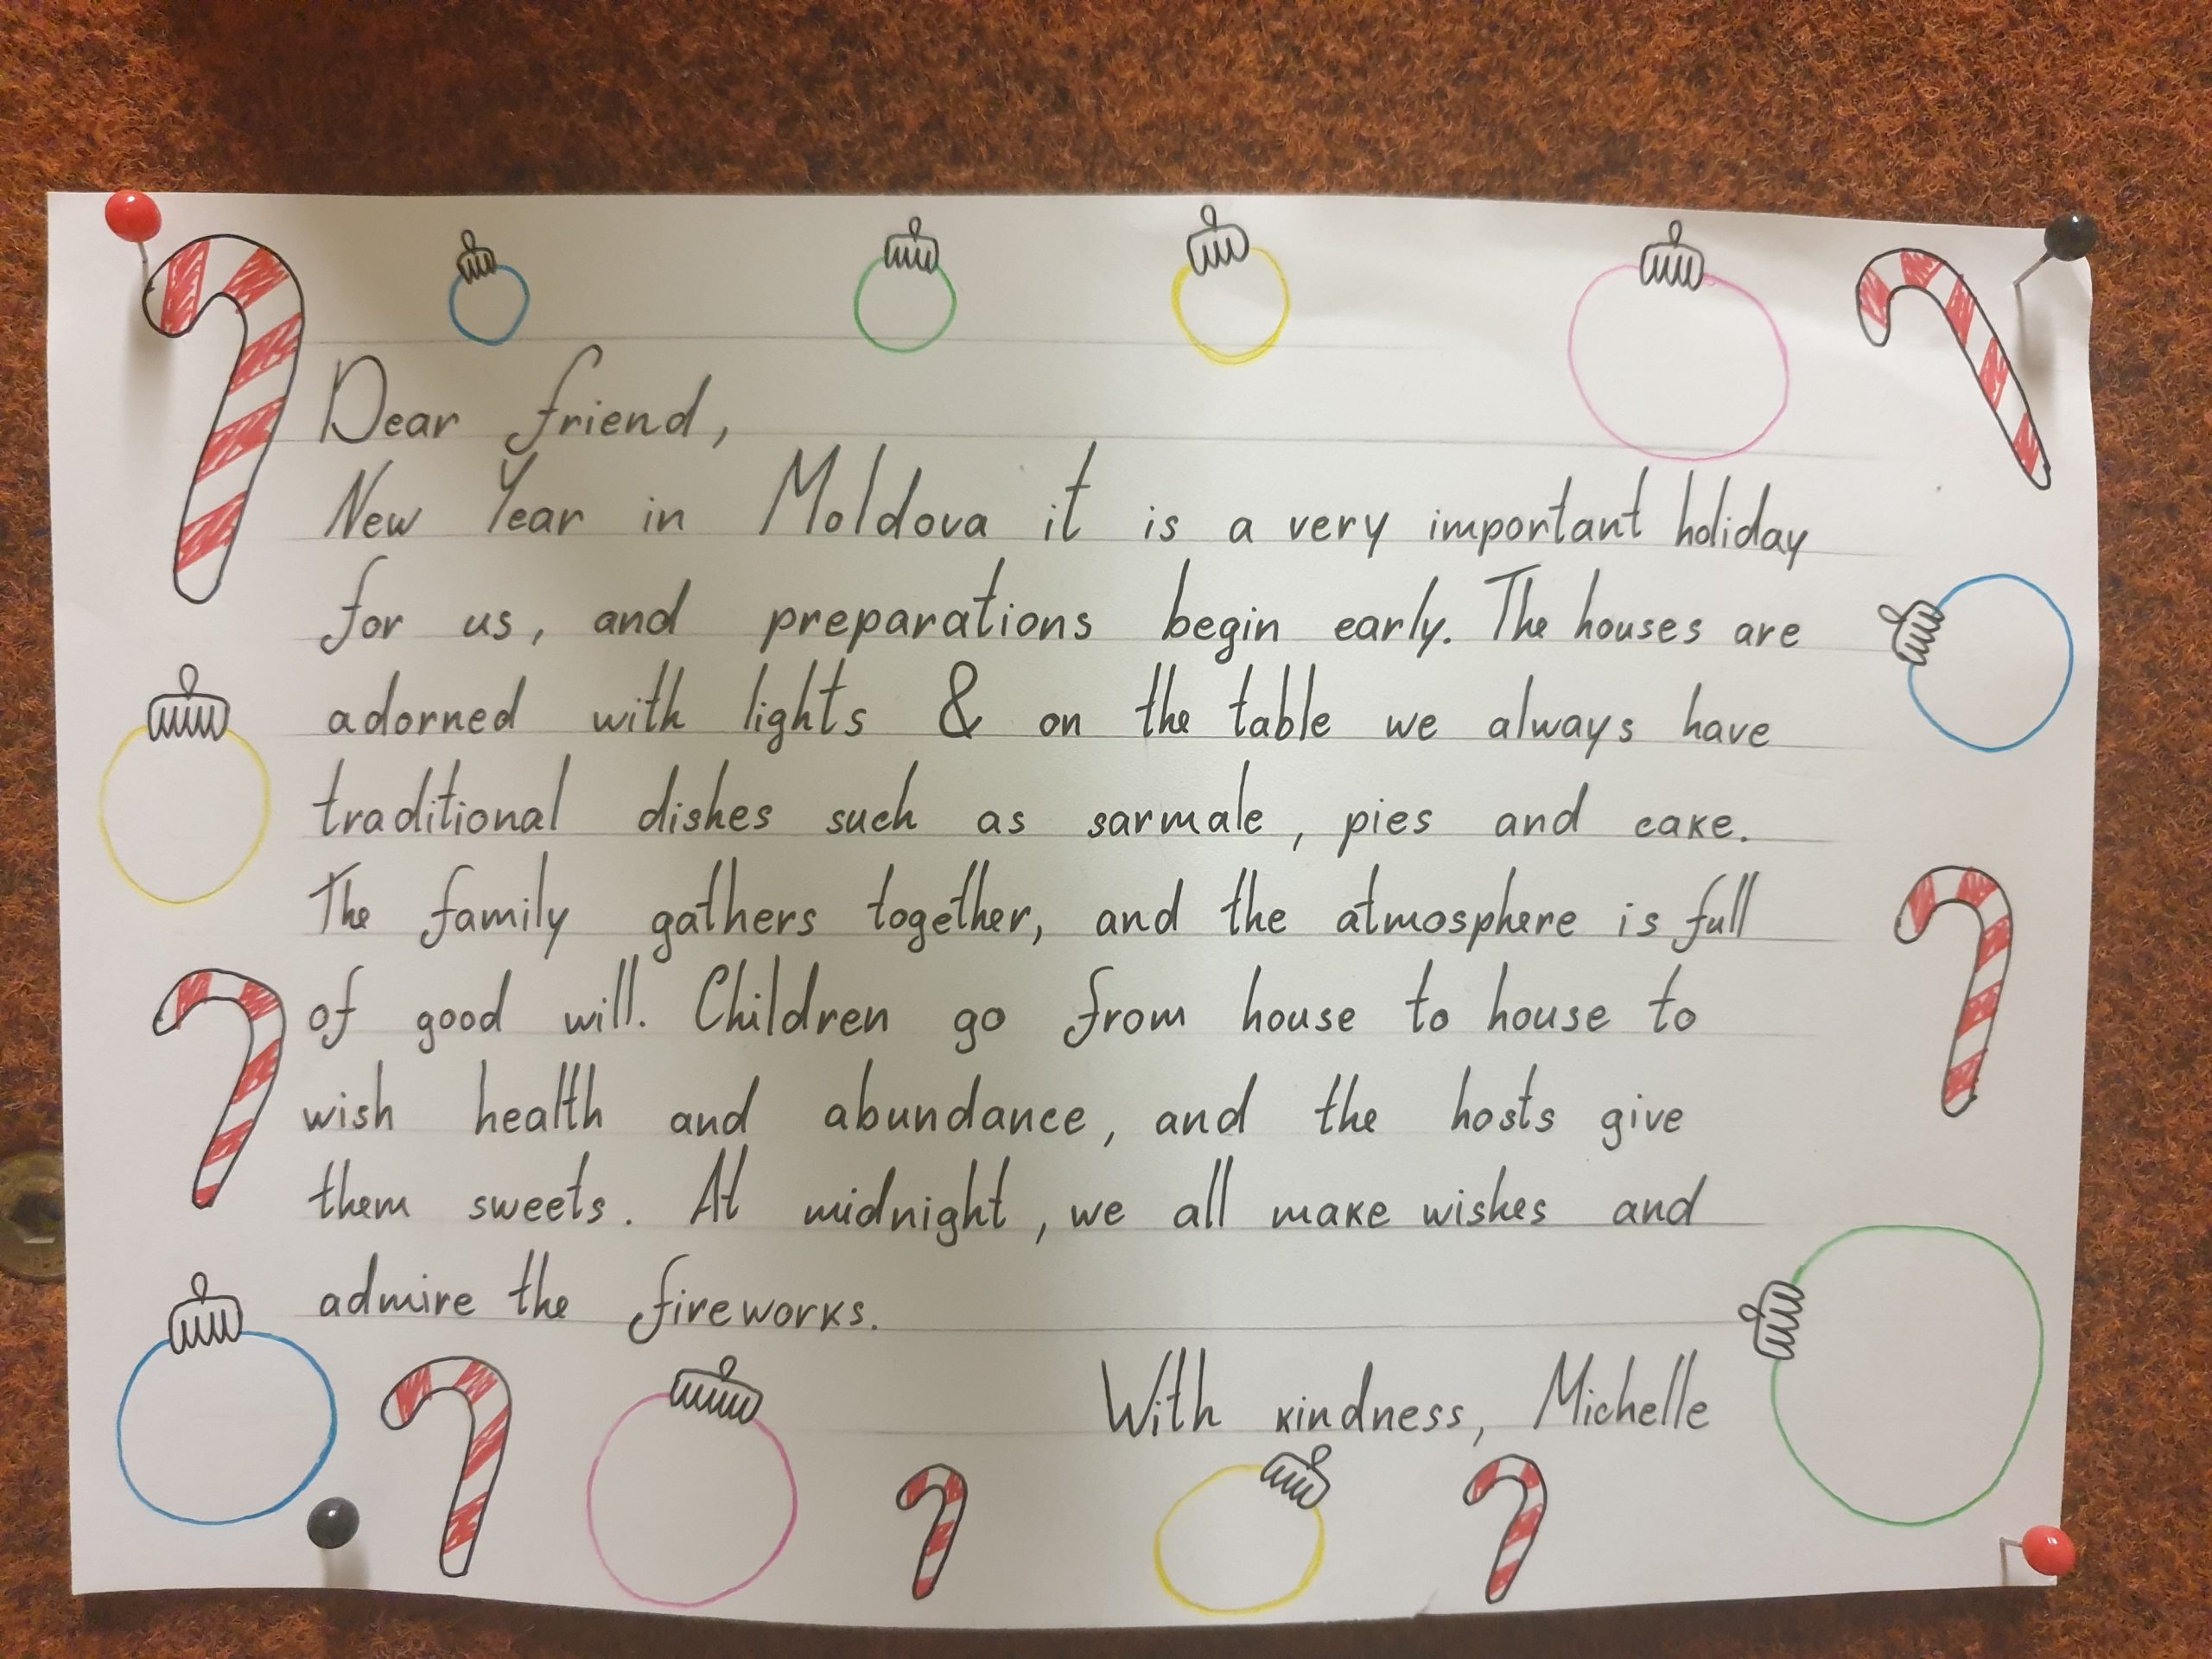 Dear friend,
New Year in Moldova it is a very important holiday
for us, and preparations begin early. The houses are
adorned with lights & on the table we always have
traditional dishes such as sarmale, pies and cake.
The family gathers together, and the atmosphere is full
of good will. Children go from house to house to
wish health and abundance, and the hosts give
them sweets. At midnight, we all make wishes and
admire the fireworks.
With kindness, Michelle